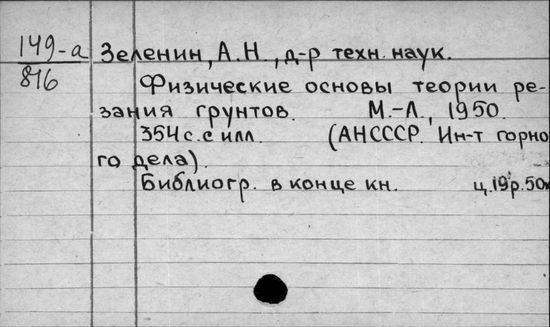 149-а
816
Зеленин, А.Н., д-р техн. наук.
Физические основы теории ре-
зания грунтов. М.-Л., 1950.
354 с. с илл. (АНСССР. Ин-т горно
го дела).
Библиогр. в конце кн. ц. 19р. 50к